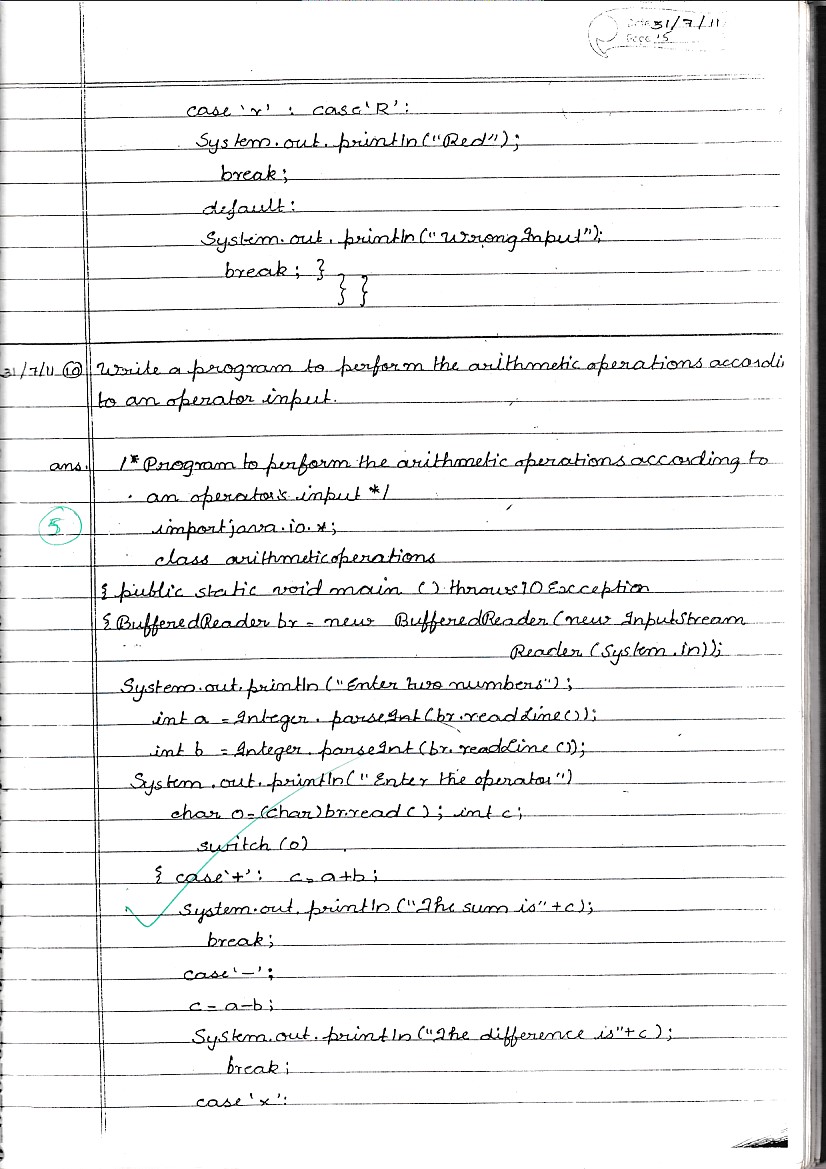 Date 31/7/11
Page 15
case 'r' : case 'R':
System.out.println("Red");
break;
default:
System.out.println("Wrong Input");
break; }
} }
31/7/11 10 Write a program to perform the arithmetic operations accordi
to an operator input.
ans. /* Program to perform the arithmetic operations according to
an operator's input */
5 import java.io.*;
class arithmeticoperations
{ public static void main () throws IOException
{ BufferedReader br = new BufferedReader (new InputStream
Reader (System.in));
System.out.println ("Enter two numbers");
int a = Integer.parseInt(br.readLine());
int b = Integer.parseInt(br.readLine());
System.out.println("Enter the operator")
char o=(char)br.read(); int c;
switch (o)
{ case '+': c = a+b;
System.out.println ("The sum is"+c);
break;
case '-';
c = a-b;
System.out.println ("The difference is"+c);
break;
case 'x':